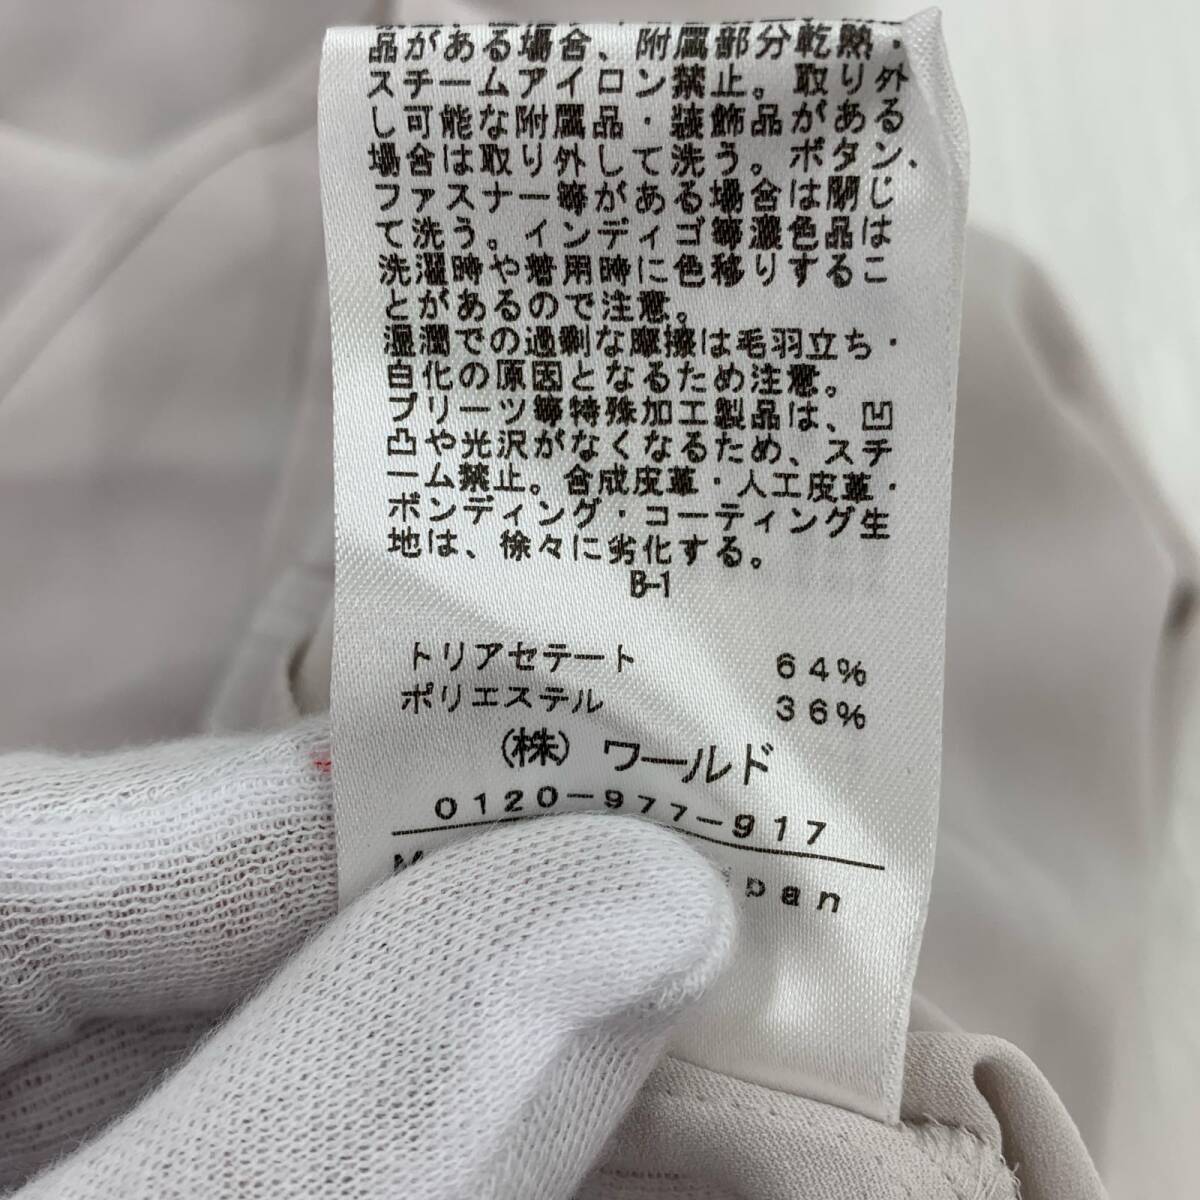 品がある場合、附属部分乾熱・
スチームアイロン禁止。取り外
し可能な附属品・装飾品がある
場合は取り外して洗う。ボタン、
ファスナー等がある場合は閉じ
て洗う。インディゴ等濃色品は
洗濯時や着用時に色移りするこ
とがあるので注意。
湿潤での過剰な摩擦は毛羽立ち・
白化の原因となるため注意。
プリーツ等特殊加工製品は、凹
凸や光沢がなくなるため、スチ
ーム禁止。合成皮革・人工皮革・
ボンディング・コーティング生
地は、徐々に劣化する。
B-1
トリアセテート 64%
ポリエステル 36%
(株) ワールド
0120-977-917
pan